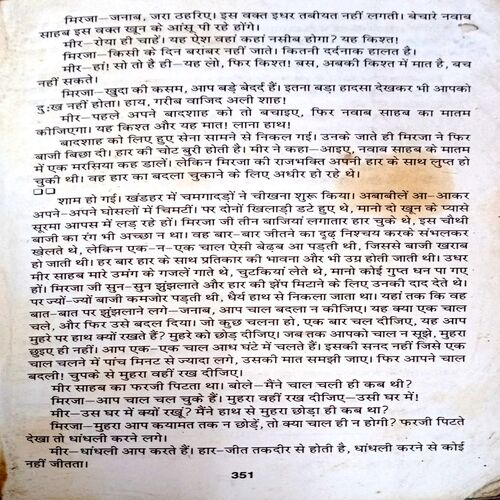 मिरजा—जनाब, जरा ठहरिए। इस वक्त इधर तबीयत नहीं लगती। बेचारे नवाब
साहब इस वक्त खून के आंसू पी रहे होंगे।
मीर—रोया ही चाहें। यह ऐश वहां कहां नसीब होगा? यह किश्त!
मिरजा—किसी के दिन बराबर नहीं जाते। कितनी दर्दनाक हालत है।
मीर—हां! सो तो है ही—यह लो, फिर किश्त! बस, अबकी किश्त में मात है, बच
नहीं सकते।
मिरजा—खुदा की कसम, आप बड़े बेदर्द हैं। इतना बड़ा हादसा देखकर भी आपको
दु:ख नहीं होता। हाय, गरीब वाजिद अली शाह!
मीर—पहले अपने बादशाह को तो बचाइए, फिर नवाब साहब का मातम
कीजिएगा। यह किश्त और यह मात! लाना हाथ!
बादशाह को लिए हुए सेना सामने से निकल गई। उनके जाते ही मिरजा ने फिर
बाजी बिछा दी। हार की चोट बुरी होती है। मीर ने कहा—आइए, नवाब साहब के मातम
में एक मरसिया कह डालें। लेकिन मिरजा की राजभक्ति अपनी हार के साथ लुप्त हो
चुकी थी। वह हार का बदला चुकाने के लिए अधीर हो रहे थे।
□□
शाम हो गई। खंडहर में चमगादड़ों ने चीखना शुरू किया। अबाबीलें आ-आकर
अपने-अपने घोसलों में चिमटीं। पर दोनों खिलाड़ी डटे हुए थे, मानो दो खून के प्यासे
सूरमा आपस में लड़ रहे हों। मिरजा जी तीन बाजियां लगातार हार चुके थे, इस चौथी
बाजी का रंग भी अच्छा न था। वह बार-बार जीतने का दृढ़ निश्चय करके संभलकर
खेलते थे, लेकिन एक-न-एक चाल ऐसी बेढब आ पड़ती थी, जिससे बाजी खराब
हो जाती थी। हर बार हार के साथ प्रतिकार की भावना और भी उग्र होती जाती थी। उधर
मीर साहब मारे उमंग के गजलें गाते थे, चुटकियां लेते थे, मानो कोई गुप्त धन पा गए
हों। मिरजा जी सुन-सुन झुंझलाते और हार की झेंप मिटाने के लिए उनकी दाद देते थे।
पर ज्यों-ज्यों बाजी कमजोर पड़ती थी, धैर्य हाथ से निकला जाता था। यहां तक कि वह
बात-बात पर झुंझलाने लगे—जनाब, आप चाल बदला न कीजिए। यह क्या एक चाल
चले, और फिर उसे बदल दिया। जो कुछ चलना हो, एक बार चल दीजिए, यह आप
मुहरे पर हाथ क्यों रखते हैं? मुहरे को छोड़ दीजिए। जब तक आपको चाल न सूझे, मुहरा
छुइए ही नहीं। आप एक-एक चाल आध घंटे में चलते हैं। इसकी सनद नहीं जिसे एक
चाल चलने में पांच मिनट से ज्यादा लगे, उसकी मात समझी जाए। फिर आपने चाल
बदली! चुपके से मुहरा वहीं रख दीजिए।
मीर साहब का फरजी पिटता था। बोले—मैंने चाल चली ही कब थी?
मिरजा—आप चाल चल चुके हैं। मुहरा वहीं रख दीजिए—उसी घर में!
मीर—उस घर में क्यों रखूं? मैंने हाथ से मुहरा छोड़ा ही कब था?
मिरजा—मुहरा आप कयामत तक न छोड़ें, तो क्या चाल ही न होगी? फरजी पिटते
देखा तो धांधली करने लगे।
मीर—धांधली आप करते हैं। हार-जीत तकदीर से होती है, धांधली करने से कोई
नहीं जीतता।
351